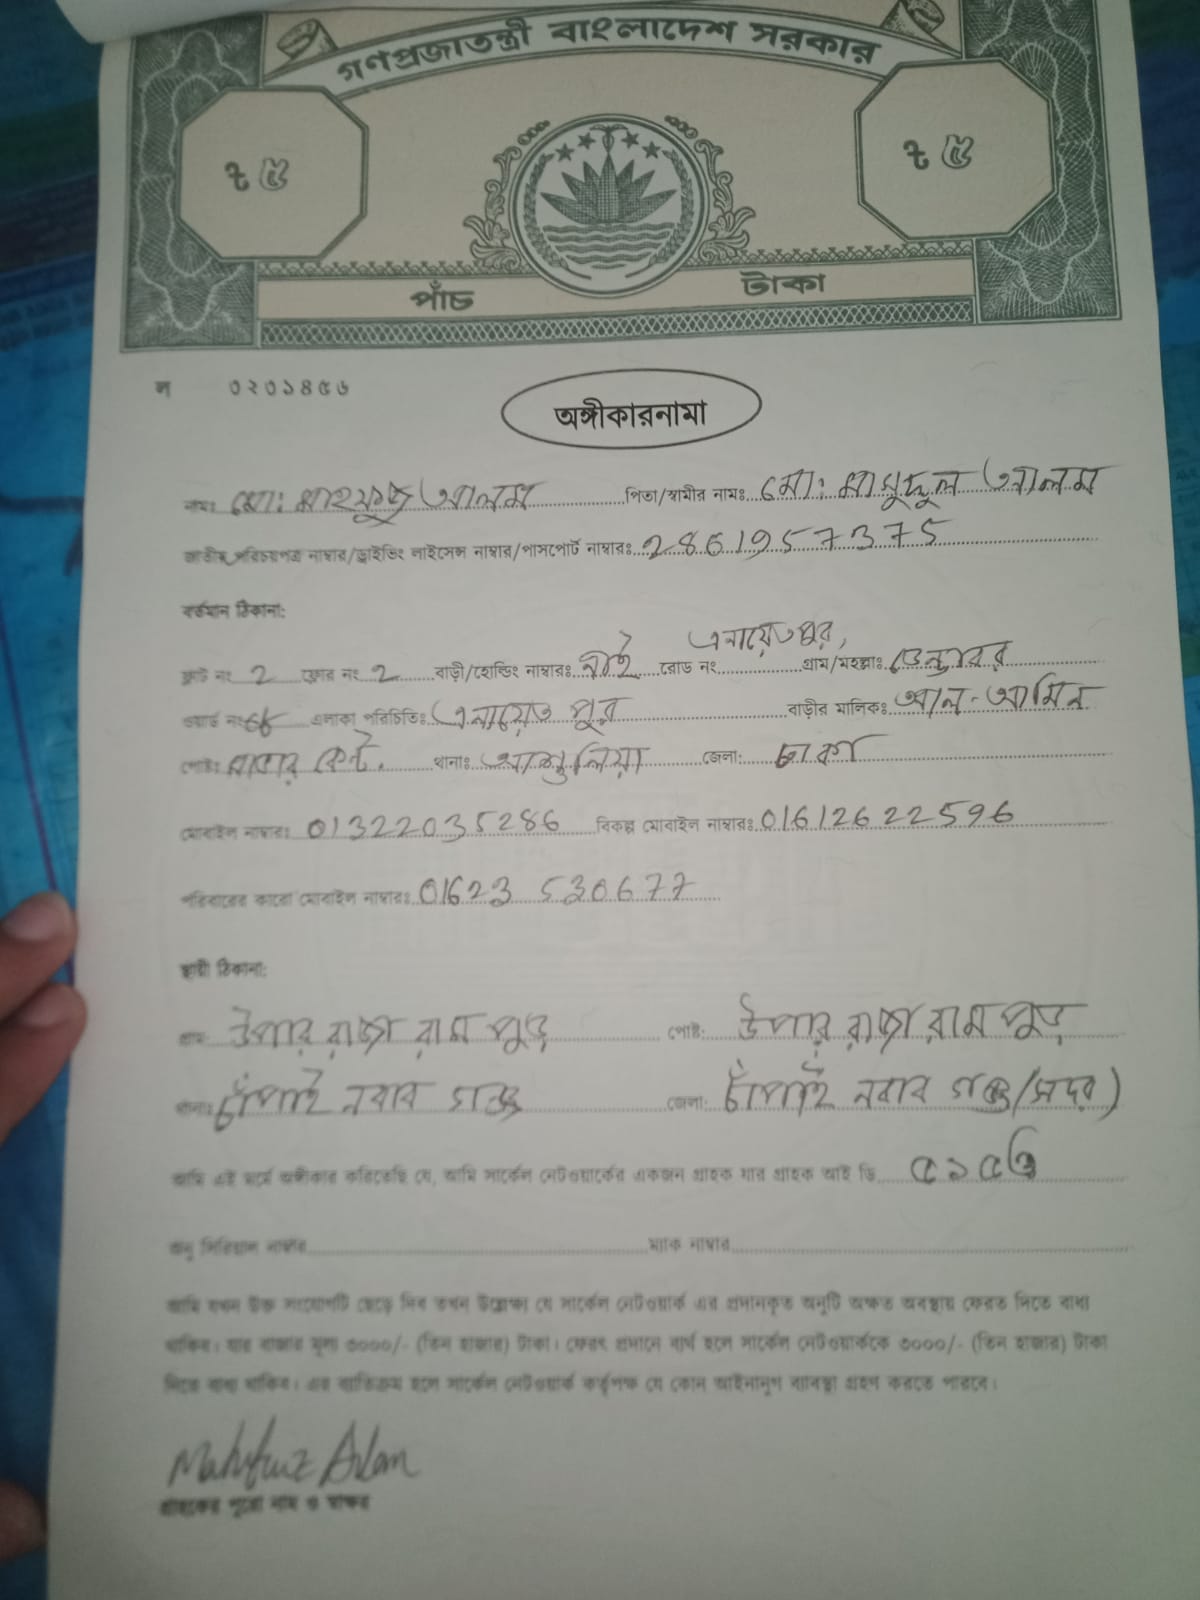 গণপ্রজাতন্ত্রী বাংলাদেশ সরকার
৳ ৫ ৳ ৫
পাঁচ টাকা
ল ০২০১৪৫৬
অঙ্গীকারনামা
নামঃ মোঃ মাহফুজ আলম পিতা/স্বামীর নামঃ মোঃ মাসুদুল আলম
জাতীয় পরিচয়পত্র নাম্বার/ড্রাইভিং লাইসেন্স নাম্বার/পাসপোর্ট নাম্বারঃ 2861957375
বর্তমান ঠিকানা:
ফ্লাট নং 2 ফ্লোর নং 2 বাড়ী/হোল্ডিং নাম্বারঃ নাই রোড নং এনায়েতপুর, গ্রাম/মহল্লাঃ
ওয়ার্ড নং এলাকা পরিচিতিঃ এনায়েত পুর বাড়ীর মালিকঃ আল-আমিন
পোষ্টঃ থানাঃ আশুলিয়া জেলা: ঢাকা
মোবাইল নাম্বারঃ 01322035286 বিকল্প মোবাইল নাম্বারঃ 01612622596
পরিবারের কারো মোবাইল নাম্বারঃ 01623 530677
স্থায়ী ঠিকানা:
গ্রামঃ উপার রাজা রাম পুড় পোষ্ট: উপার রাজা রাম পুড়
থানাঃ চাঁপাই নবাব গঞ্জ জেলা: চাঁপাই নবাব গঞ্জ/সদর)
আমি এই মর্মে অঙ্গীকার করিতেছি যে, আমি সার্কেল নেটওয়ার্কের একজন গ্রাহক যার গ্রাহক আই ডি ৫১৫৩
অনু সিরিয়াল নাম্বার ম্যাক নাম্বার
আমি যখন উক্ত সংযোগটি ছেড়ে দিব তখন উল্লেক্ষ্য যে সার্কেল নেটওয়ার্ক এর প্রদানকৃত অনুটি অক্ষত অবস্থায় ফেরত দিতে বাধ্য
থাকিব। যার বাজার মূল্য ৩০০০/- (তিন হাজার) টাকা। ফেরৎ প্রদানে ব্যর্থ হলে সার্কেল নেটওয়ার্ককে ৩০০০/- (তিন হাজার) টাকা
দিতে বাধ্য থাকিব। এর ব্যতিক্রম হলে সার্কেল নেটওয়ার্ক কর্তৃপক্ষ যে কোন আইনানুগ ব্যবস্থা গ্রহণ করতে পারবে।
Mahfuz Alam
গ্রাহকের পুরো নাম ও স্বাক্ষর